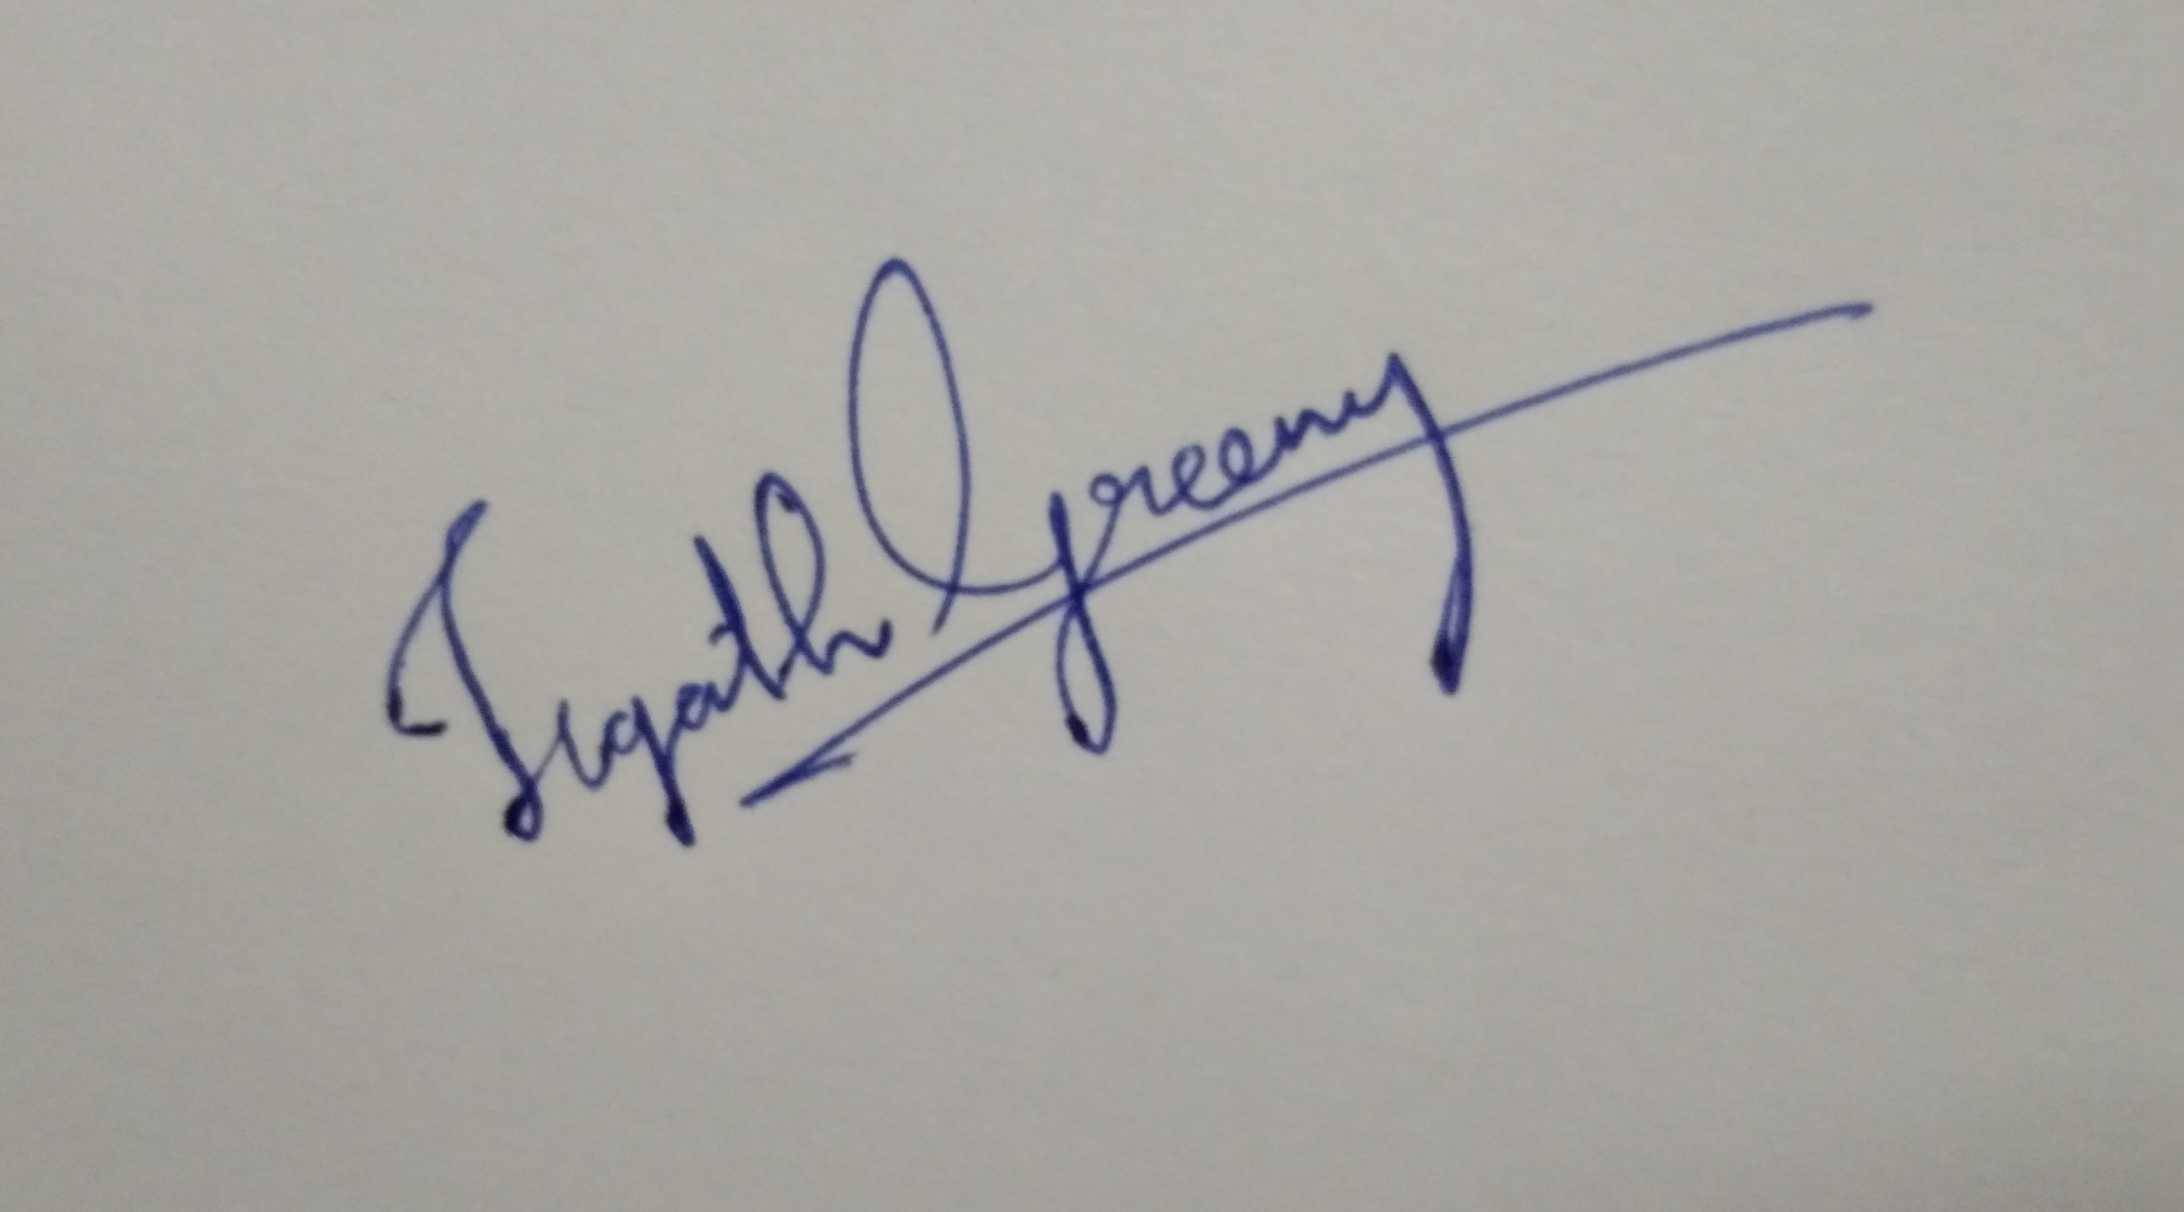 Jigath Greeny